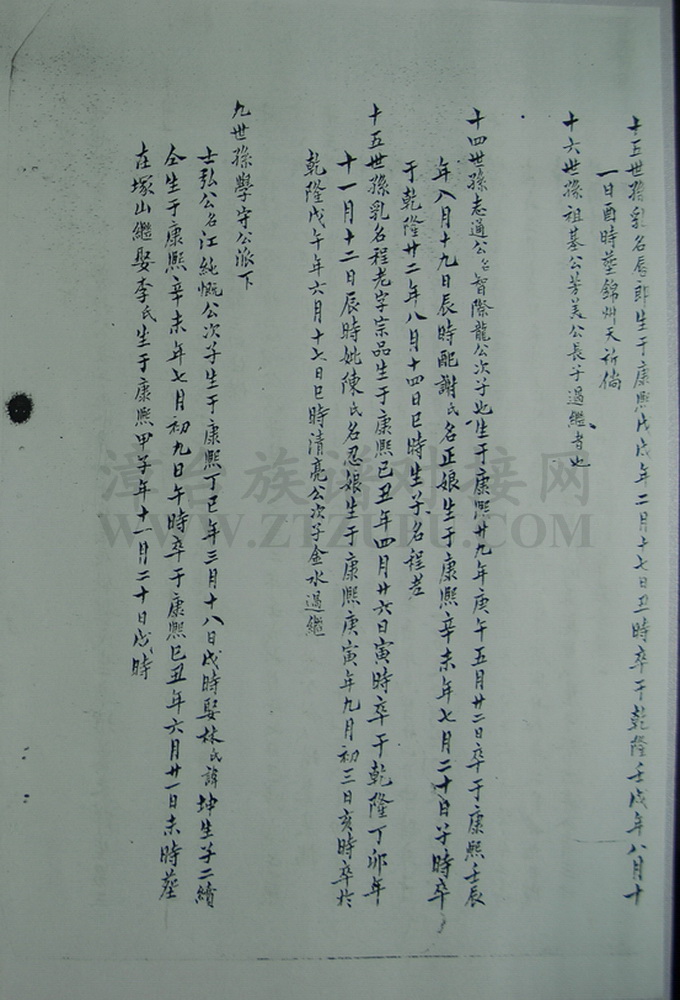 十五世孫乳名唇郎生于康熙戊戌年二月十七日丑時卒于乾隆壬戌年八月十
一日酉時塟錦州天祈倘
十六世孫祖基公芳美公長子過繼者也
十四世孫志通公名智際龍公次子也生于康熙廿九年庚午五月廿二日卒于康熙壬辰
年八月十九日辰時配謝氏名正娘生于康熙辛未年七月二十日子時卒
于乾隆廿二年八月十四日巳時生子名程老
十五世孫乳名程老字宗品生于康熙己丑年四月廿六日寅時卒于乾隆丁卯年
十一月十二日辰時妣陳氏名忍娘生于康熙庚寅年九月初三日亥時卒於
乾隆戊午年六月十七日巳時清亮公次子金水過繼
九世孫學守公派下
士弘公名江純慨公次子生于康熙丁巳年三月十八日戌時娶林氏諱坤生子二績
仝生于康熙辛未年七月初九日午時卒于康熙己丑年六月廿一日未時塟
在塚山繼娶李氏生于康熙甲子年十一月二十日戌時
漳台族譜对接网
WWW.ZTZUPU.COM